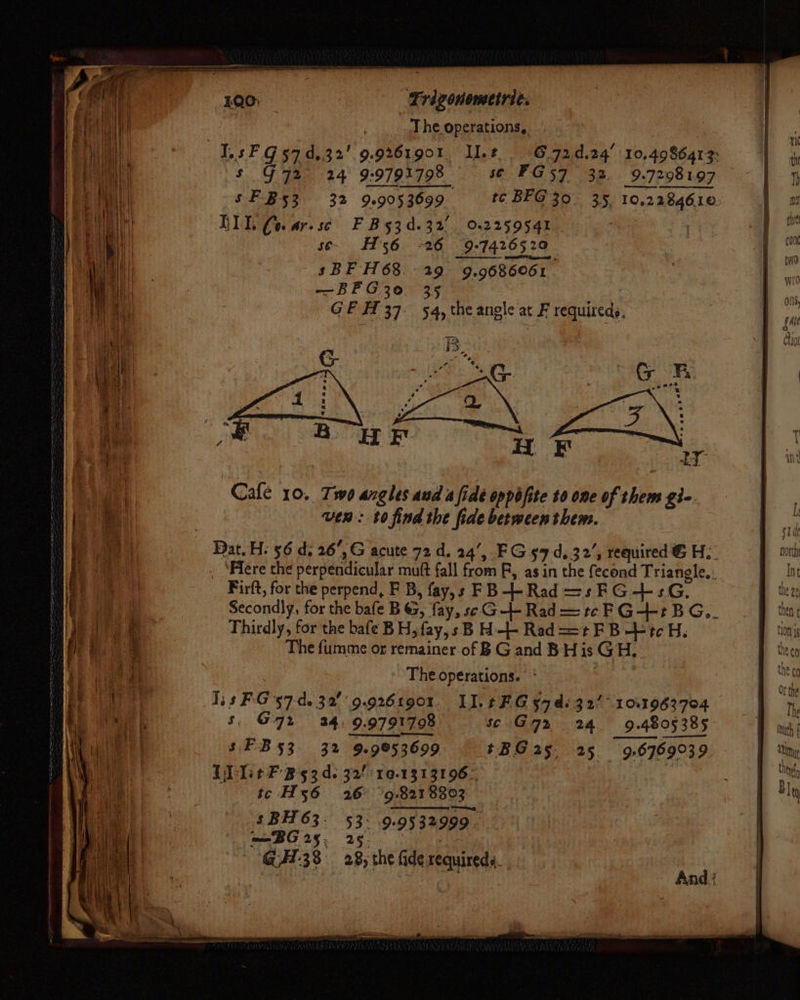 190 Trigonometrie.
The operations,
I.sFG 57 d.32' 9.9261901. II.t G 72d.24' 10.4986413:
s G 72 24 9:9791798 sc FG 57. 32. 9.7298197
s FB 53 32 9.9053699 tc BFG 30. 35, 10.2284610
III. Co. ar. sc FB 53 d. 32' 0.2259541
sc H 56 26 9.7426520
s BF H 68 29 9.9686061
—BFG 30 35
GFH 37 54, the angle at F required.
G B G G B
1 2 3
F B H F H F H
Caſe 10. Two angles and a ſide oppoſite to one of them gi-
ven : to find the ſide between them.
Dat. H: 56 d; 26', G acute 72 d. 24', FG 57 d. 32', required G H.
Here the perpendicular muſt fall from F, as in the ſecond Triangle.
Firſt, for the perpend, F B, ſay, s F B + Rad = s F G + s G.
Secondly, for the baſe B G, ſay, sc G + Rad = tc F G + t B G.
Thirdly, for the baſe B H, ſay, s B H + Rad = t F B + tc H.
The ſumme or remainer of B G and B H is G H.
The operations.
I. s FG 57 d. 32' 9.9261901 II. t FG 57 d. 32' 10.1963704
s, G 72 24. 9.9791798 sc G 72 24 9.4805385
s FB 53 32 9.9053699 t BG 25, 25 9.6769039
III. t F B 53 d. 32' 10.1313196
tc H 56 26 9.8218803
s BH 63. 53: 9.9532999
—BG 25, 25.
GH 38 28, the ſide required.
And